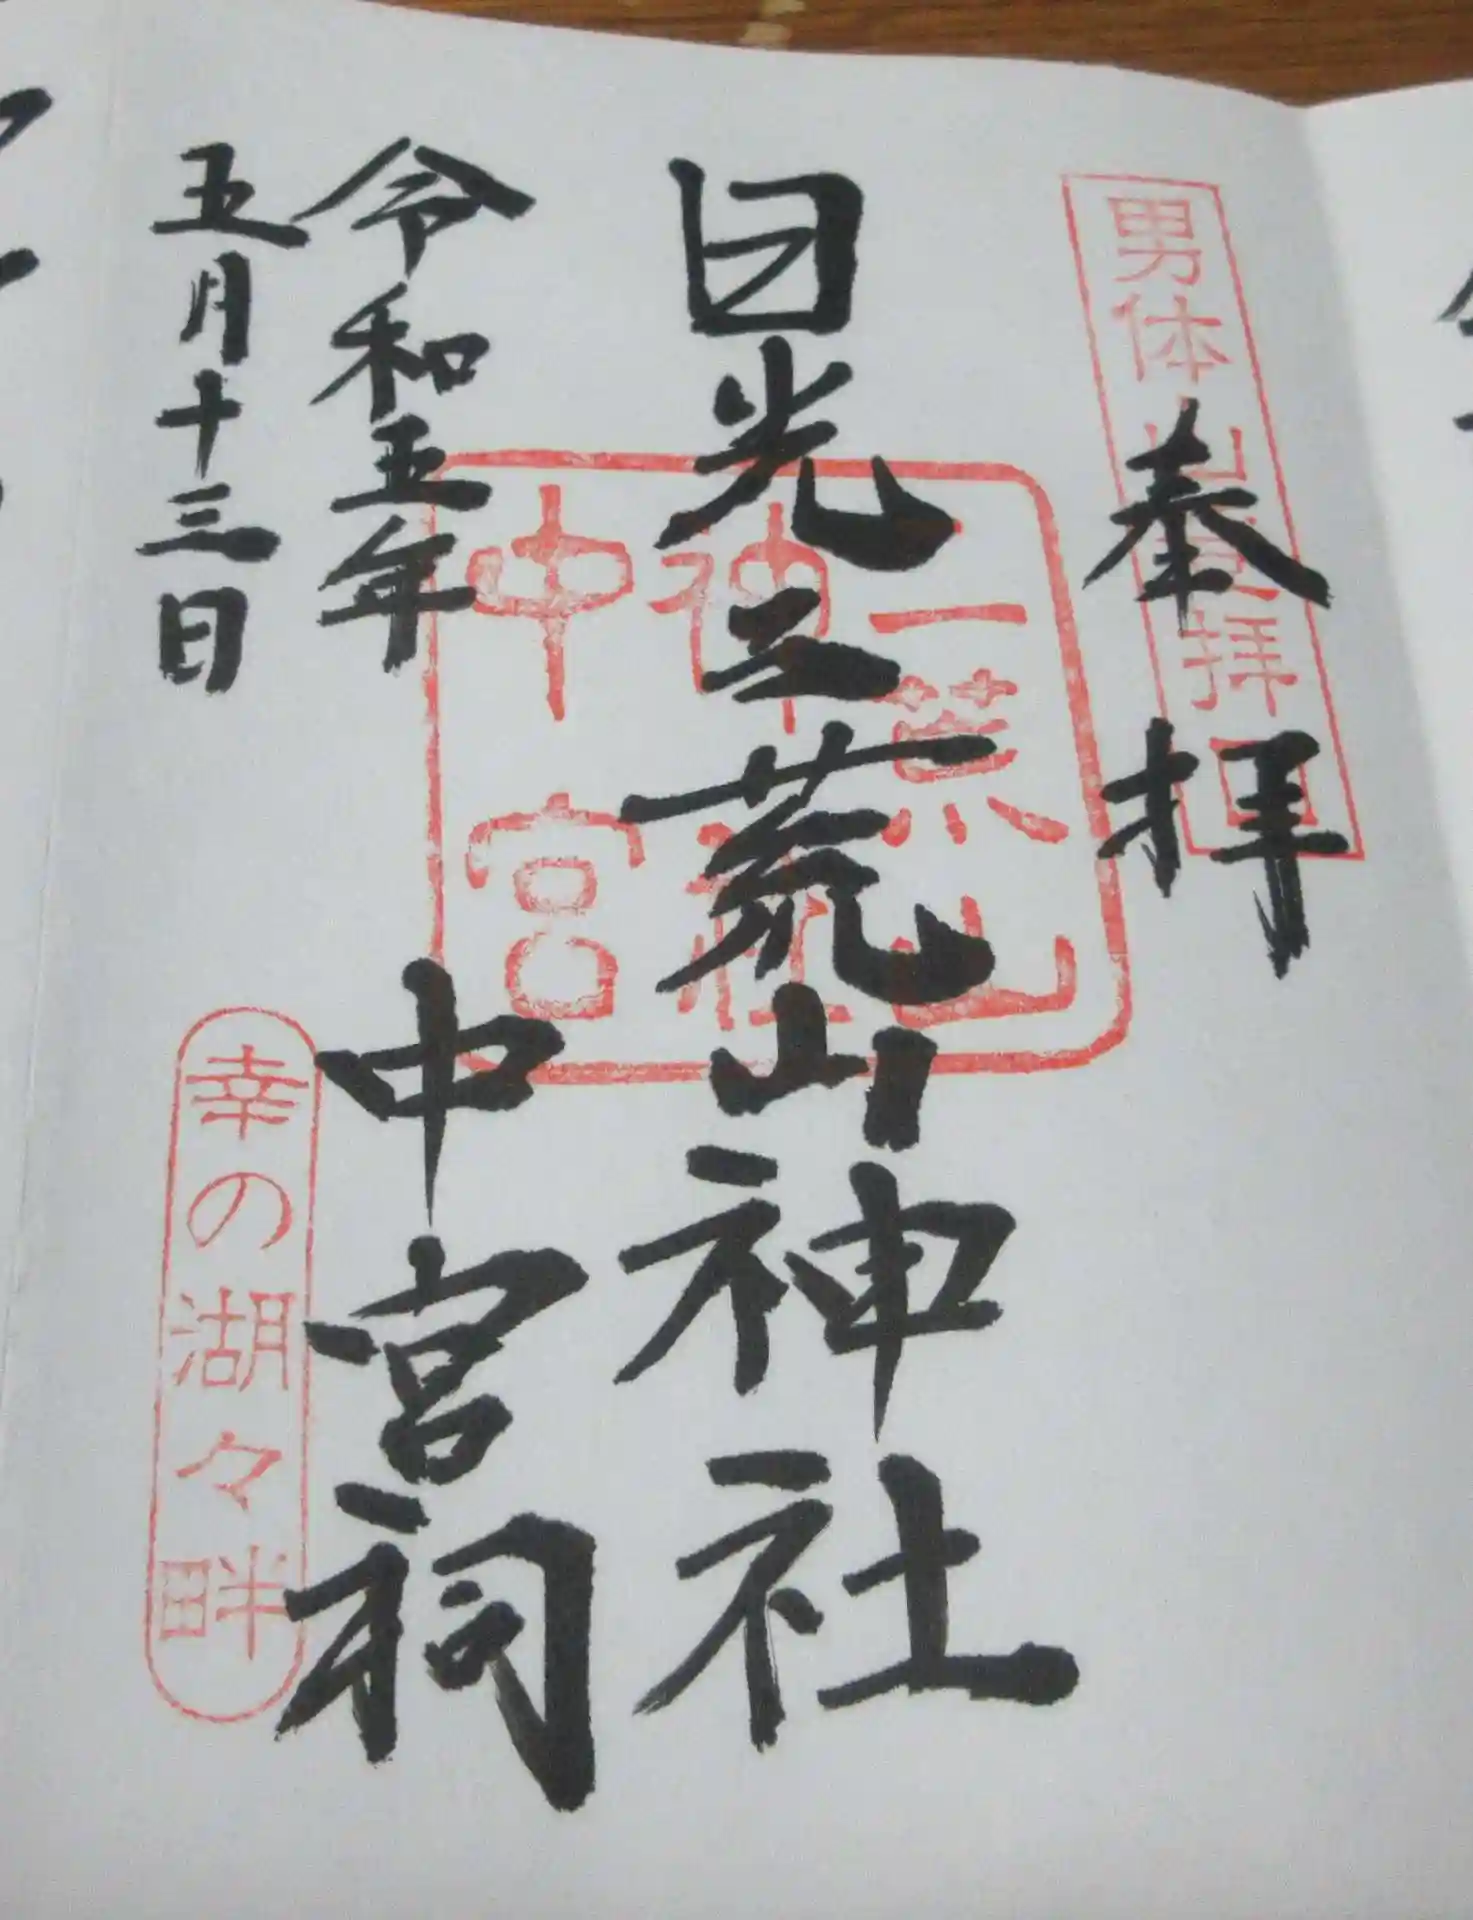 奉拝
日光二荒山神社
中宮祠
令和五年
五月十三日
男体山登拝口
二荒山
神社
中宮
幸の湖々畔